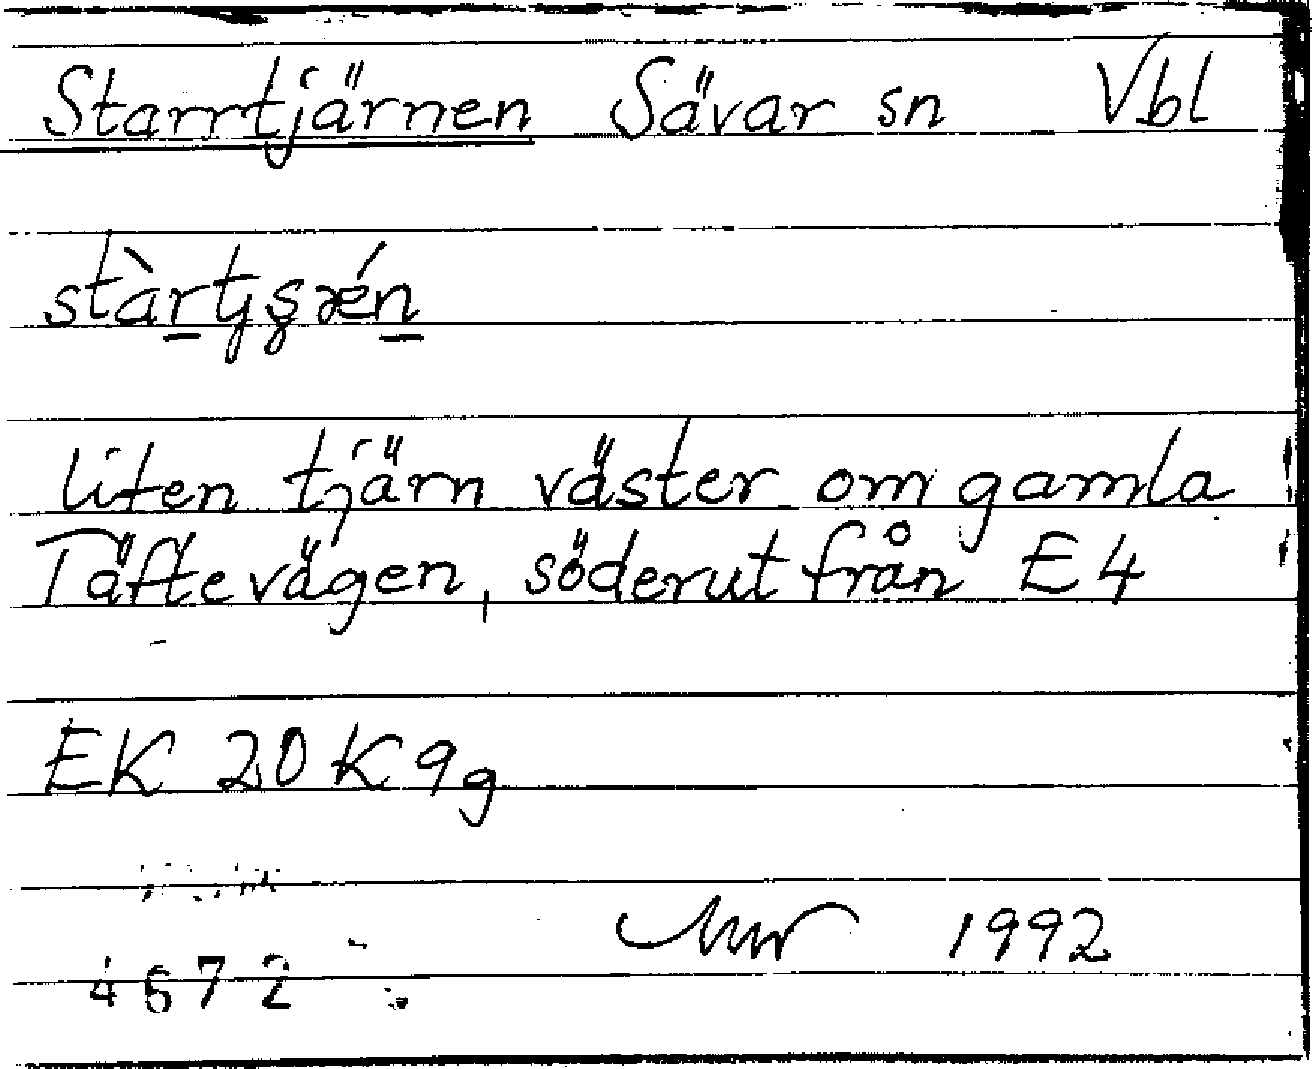 Starrtjärnen Sävar sn Vbl
liten tjärn väster om gamla
Täftevägen, söderut från E4
EK 20K 9g
1992
4672